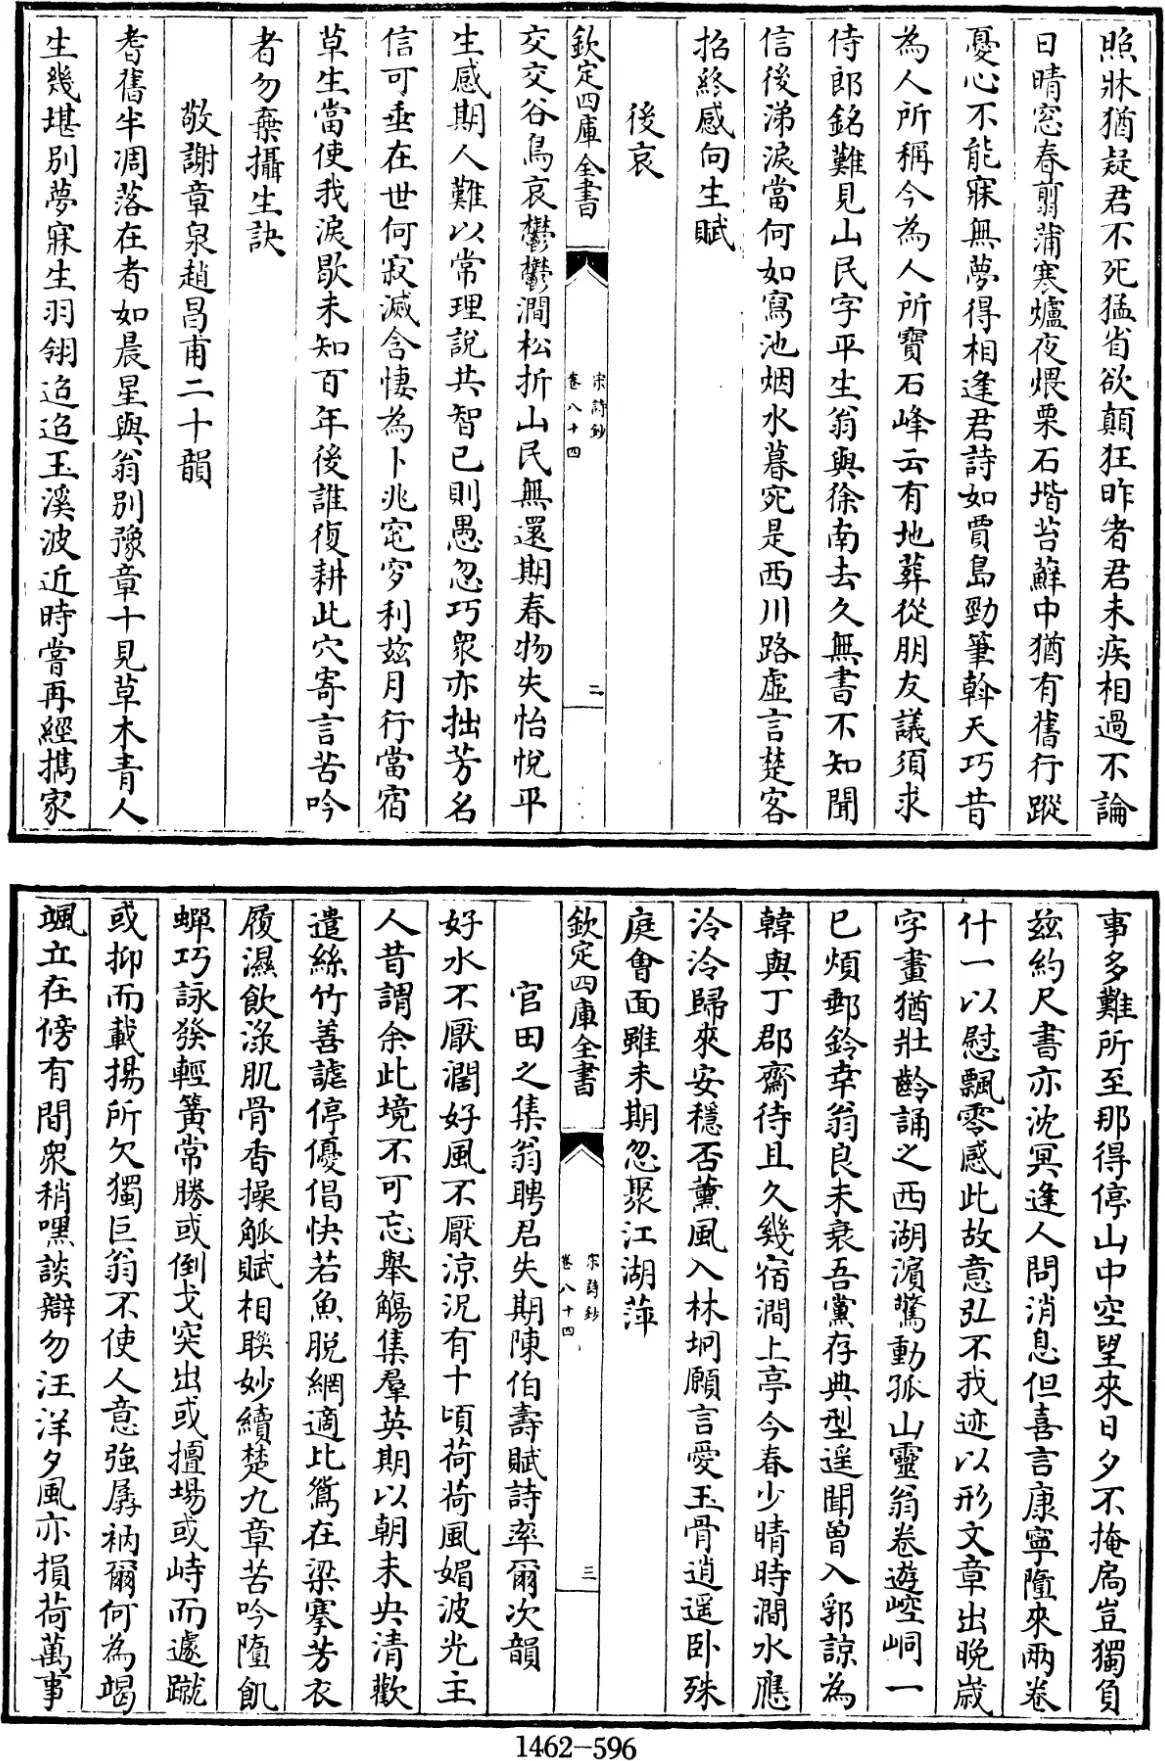 照牀猶疑君不死猛省欲顛狂昨者君未疾相過不論
日晴窓春剪蒲寒爐夜煨栗石堦苔蘚中猶有舊行蹤
憂心不能寐無夢得相逢君詩如賈島勁筆斡天巧昔
為人所稱今為人所寶石峰云有地葬從朋友議須求
侍郎銘難見山民字平生翁與徐南去久無書不知聞
信後涕淚當何如寫池烟水暮宛是西川路虛言楚客
招終感向生賦
後哀
欽定四庫全書
宋詩鈔
卷八十四
二
交交谷鳥哀鬱鬱澗松折山民無還期春物失怡悅平
生感期人難以常理說共智已則愚忽巧衆亦拙芳名
信可垂在世何寂滅含悽為卜兆窀穸利兹月行當宿
草生當使我淚歇未知百年後誰復耕此穴寄言苦吟
者勿棄攝生訣
敬謝章泉趙昌甫二十韻
耆舊半凋落在者如晨星與翁别豫章十見草木青人
生幾堪别夢寐生羽翎迢迢玉溪波近時嘗再經擕家
事多難所至那得停山中空望來日夕不掩扃豈獨負
兹約尺書亦沈冥逢人問消息但喜言康寧隨來兩卷
什一以慰飄零感此故意弘不我迹以形文章出晚歲
字畫猶壯齡誦之西湖濵驚動孤山靈翁卷遊崆峒一
已煩郵鈴幸翁良未衰吾黨存典型遥聞曾入郛諒為
韓與丁郡齋待且久幾宿澗上亭今春少晴時澗水應
泠泠歸來安穩否薰風入林坰願言愛玉骨逍遥卧殊
庭會面雖未期忽聚江湖萍
欽定四庫全書
宋詩鈔
卷八十四
三
官田之集翁聘君失期陳伯壽賦詩率爾次韻
好水不厭濶好風不厭涼況有十頃荷荷風媚波光主
人昔謂余此境不可忘舉觴集羣英期以朝未央清歡
遣絲竹善謔停優倡快若魚脱網適比鴛在梁搴芳衣
履濕飲渌肌骨香操觚賦相聯妙續楚九章苦吟墮飢
蟬巧詠發輕簧常勝或倒戈突出或擅場或峙而遽蹴
或抑而載揚所欠獨巨翁不使人意強孱衲爾何為竭
颯立在傍有間衆稍嘿談辯勿汪洋夕風亦損荷萬事
1462-596